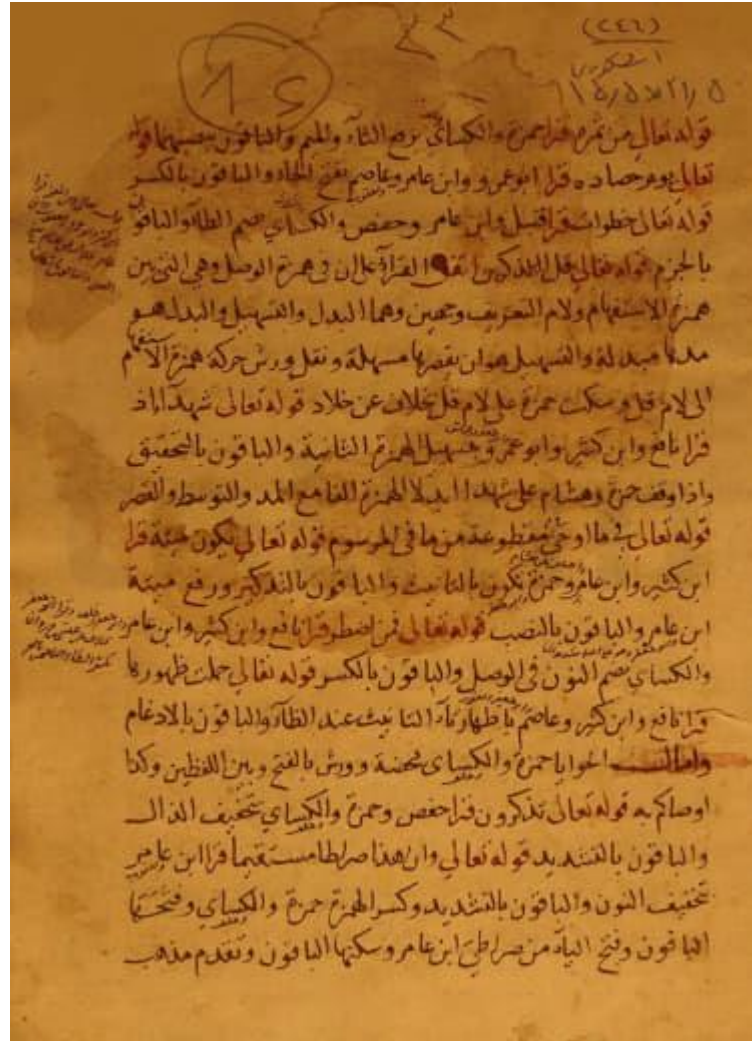 (٢٤٦)
٣٣
قوله تعالى من ثمره قرا حمزة والكسائى برفع الثاء والميم والباقون بنصبهما قوله
تعالى يوم حصاده قرا ابو عمرو وابن عامر وعاصم بفتح الحاء والباقون بالكسر
قوله تعالى خطوات قرا قنبل وابن عامر وحفص والكساي بضم الطاء والباقون
بالجزم قوله تعالى قل الذكرين اتفق القراء على ان فى همزة الوصل وهى التى بين
همزة الاستفهام ولام التعريف وجهين وهما البدل والتسهيل والبدل هو
مدها مبدلة والتسهيل هو ان يقصرها مسهلة ونقل ورش حركة همزة الاستفهام
الى لام قل وسكت حمزة على لام قل بخلاف عن خلاد قوله تعالى شهدا اذ
قرا نافع وابن كثير وابو عمرو بتسهيل الهمزة الثانية والباقون بالتحقيق
واذا وقف حمزة وهشام على شهدا ابدلا الهمزة الفا مع المد والتوسط والقصر
قوله تعالى فى ما اوحى مقطوعة من ما فى المرسوم قوله تعالى يكون ميتة قرا
ابن كثير وابن عامر وحمزة تكون بالتانيث والباقون بالتذكير ورفع ميتة
ابن عامر والباقون بالنصب قوله تعالى فمن اضطر قرا نافع وابن كثير وابن عامر
والكساي بضم النون فى الوصل والباقون بالكسر قوله تعالى حملت ظهورها
قرا نافع وابن كثير وعاصم باظهار تاء التانيث عند الظاء والباقون بالادغام
وامال الحوايا حمزة والكساي محضة وورش بالفتح وبين اللفظين وكذا
اوصاكم به قوله تعالى تذكرون قرا حفص وحمزة والكساي بتخفيف الذال
والباقون بالتشديد قوله تعالى وان هذا صراطا مستقيما قرا ابن عامر
بتخفيف النون والباقون بالتشديد وكسر الهمزة حمزة والكساي وفتحها
الباقون وفتح الياء من صراطى ابن عامر وسكنها الباقون وتقدم مذهب